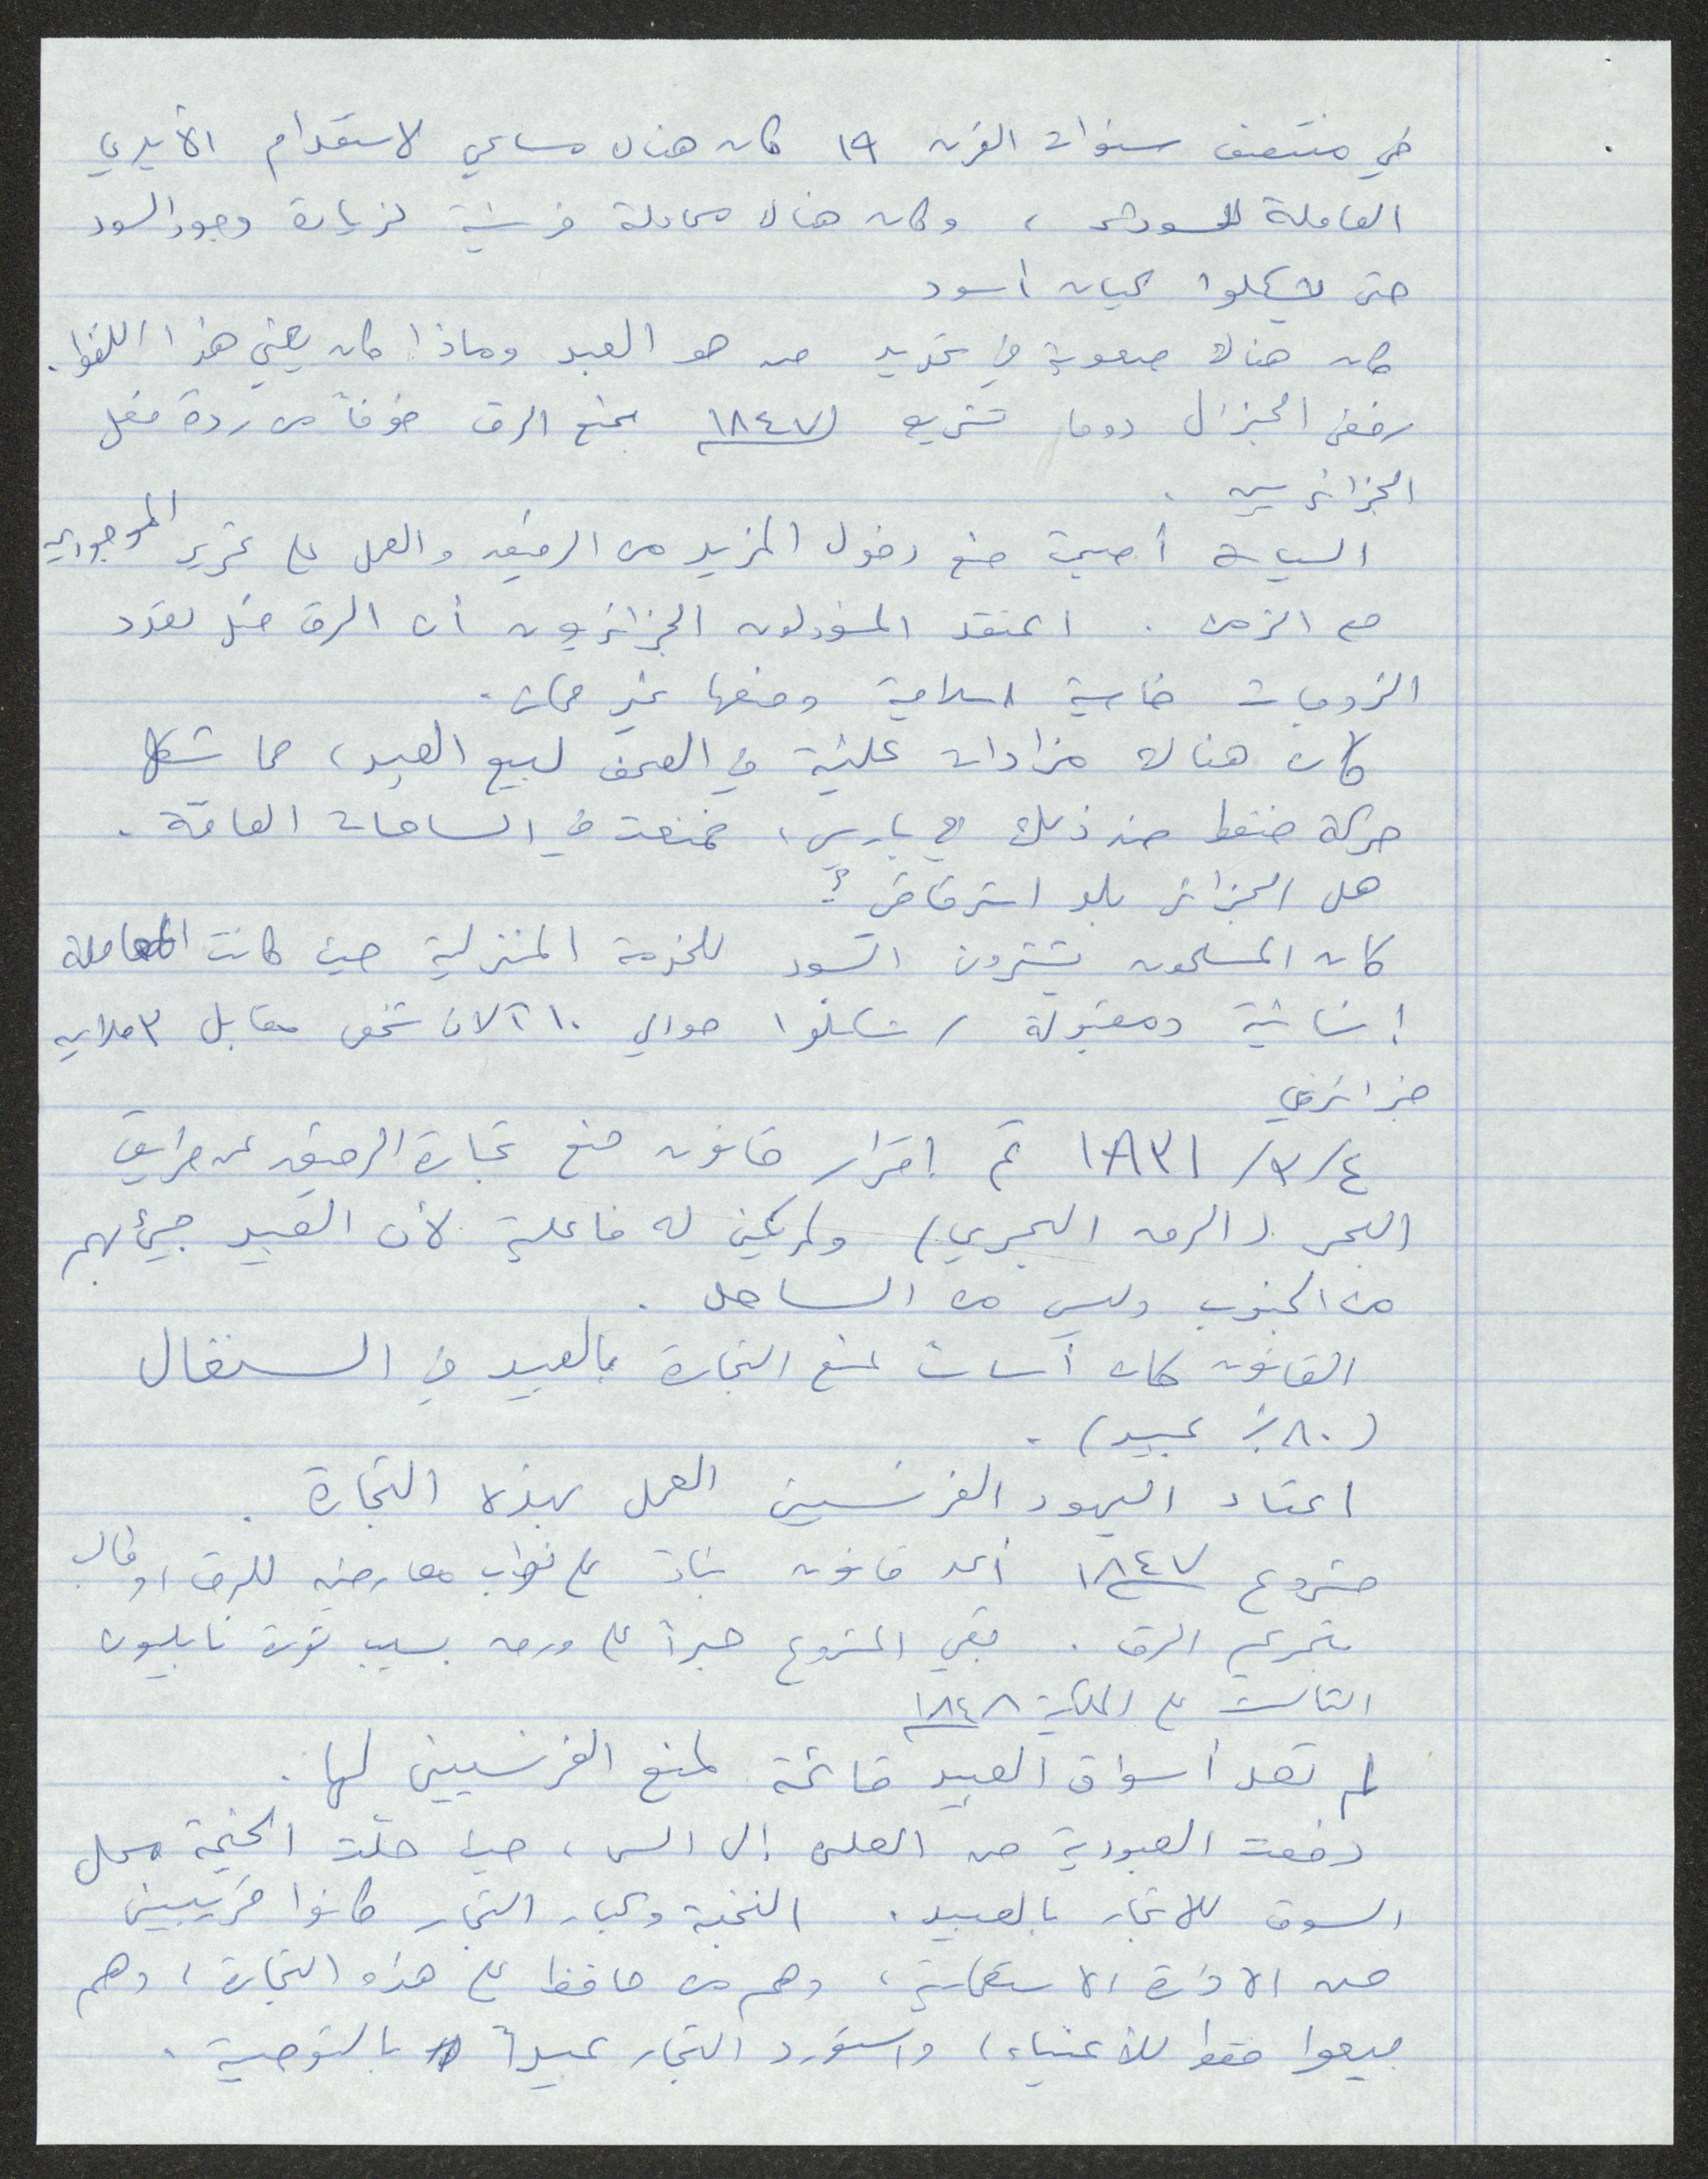 في منتصف سنوات القرن ١٩ كان هناك مساعي لاستقدام الأيدي
العاملة السوداء ، وكان هناك محاولة فرنسية لزيادة وجود السود
حتى لا يشكلوا كيان أسود
كان هناك صعوبة في تحديد من هو العبد وماذا كان يعني هذا اللفظ .
رفض الجنرال دوما تشريع ١٨٤٧ بمنع الرق خوفاً من ردة فعل
الجزائريين .
السياسة أصبحت منع دخول المزيد من الرقيق والعمل على تحرير الموجودين
مع الزمن . اعتقد المسؤولون الجزائريون أن الرق مثل تعدد
الزوجات خاصية اسلامية ومنعها غير ممكن .
كان هناك مزادات علنية في الصحف لبيع العبيد ، مما شكل
حركة ضغط ضد ذلك في باريس ، فمنعت في الساحات العامة .
هل الجزائر بلد استرقاقي ؟
كان المسلمون يشترون السود للخدمة المنزلية حيث كانت المعاملة
إنسانية ومقبولة / شكلوا حوالي ١٠ آلاف شخص مقابل ٣ ملايين
جزائري
٤/٣/١٨٣١ تم إقرار قانون منع تجارة الرقيق عن طريق
البحر (الرق البحري) ولم يكن له فاعلية لأن العبيد جيئ بهم
من الجنوب وليس من الساحل .
القانون كان أساساً لمنع التجارة بالعبيد في السنغال
(٨٠٪ عبيد) .
اعتاد اليهود الفرنسيين العمل بهذه التجارة .
مشروع ١٨٤٧ أعد قانون بناءً على نواب معارضين للرق ، وطالب
بتحريم الرق . بقي المشروع حبراً على ورق بسبب ثورة نابليون
الثالث على الملكية ١٨٤٨
لم تعد أسواق العبيد قائمة لمنع الفرنسيين لها .
دفعت العبودية من العلن إلى السر ، حيث حلّت الخيمة محل
السوق للاتجار بالعبيد . النخبة وكبار التجار كانوا قريبين
من الادارة الاستعمارية ، وهم من حافظ على هذه التجارة ، وهم
بيعوا فقط للأغنياء ، واستورد التجار عبيداً بالتوصية .